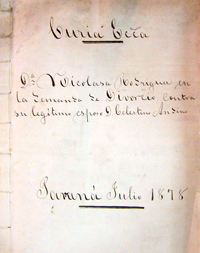 Curia Ecca
Da Nicolasa Rodriguez en
la Demanda de Divorcio contra
su legitimo esposo D. Celestino Andino
Paraná Julio 1878